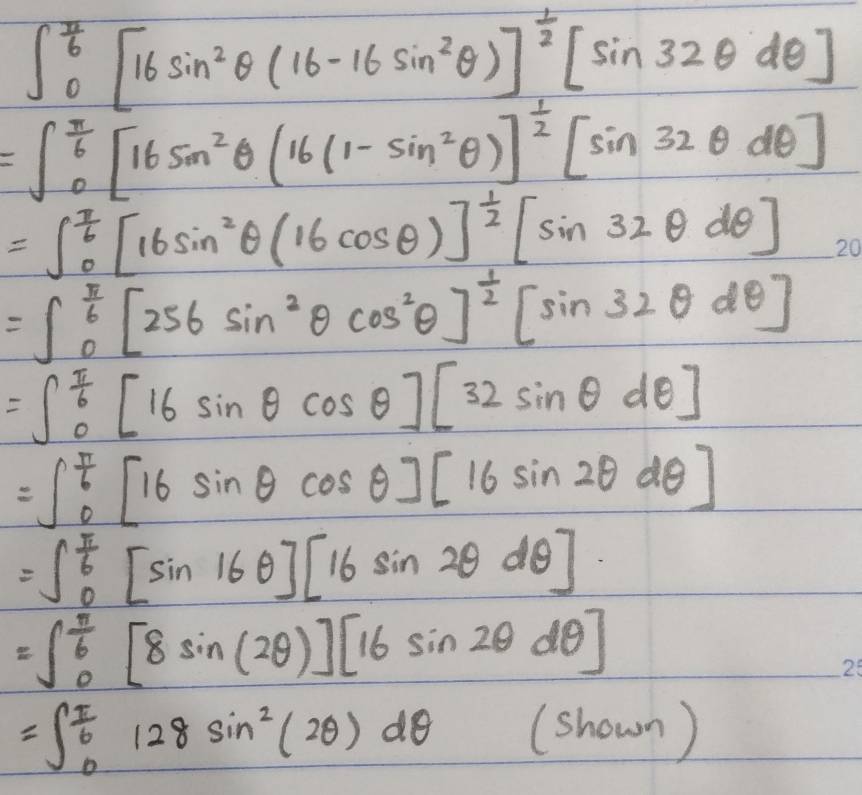 ∫₀^(π/6) [16 sin² θ (16 - 16 sin² θ)]^(1/2) [sin 32 θ dθ]
= ∫₀^(π/6) [16 sin² θ (16 (1 - sin² θ)]^(1/2) [sin 32 θ dθ]
= ∫₀^(π/6) [16 sin² θ (16 cos θ)]^(1/2) [sin 32 θ dθ] 20
= ∫₀^(π/6) [256 sin² θ cos² θ]^(1/2) [sin 32 θ dθ]
= ∫₀^(π/6) [16 sin θ cos θ][32 sin θ dθ]
= ∫₀^(π/6) [16 sin θ cos θ][16 sin 2θ dθ]
= ∫₀^(π/6) [sin 16 θ][16 sin 2θ dθ].
= ∫₀^(π/6) [8 sin (2θ)][16 sin 2θ dθ] 25
= ∫₀^(π/6) 128 sin² (2θ) dθ (Shown)